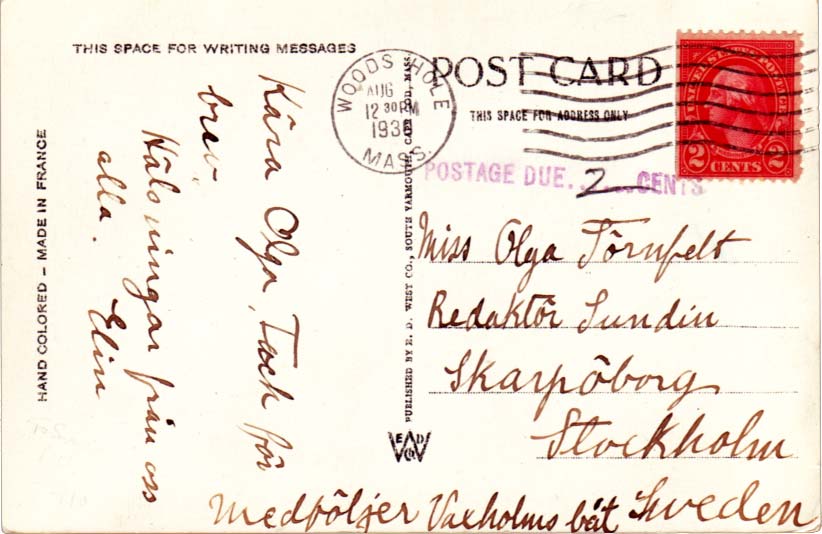 THIS SPACE FOR WRITING MESSAGES
POST CARD
THIS SPACE FOR ADDRESS ONLY
WOODS HOLE
AUG
12 30 PM
193
MASS.
UNITED STATES POSTAGE
2 CENTS 2
POSTAGE DUE......2......CENTS
HAND COLORED – MADE IN FRANCE
PUBLISHED BY E. D. WEST CO., SOUTH YARMOUTH, CAPE COD, MASS.
EDW Co
Kära Olga, Tack för
brev,
Hälsningar från oss
alla. Elin
Miss Olga Törnfelt
Redaktör Sundin
Skarpöborg
Stockholm
Sweden
Medföljer Vaxholms båt